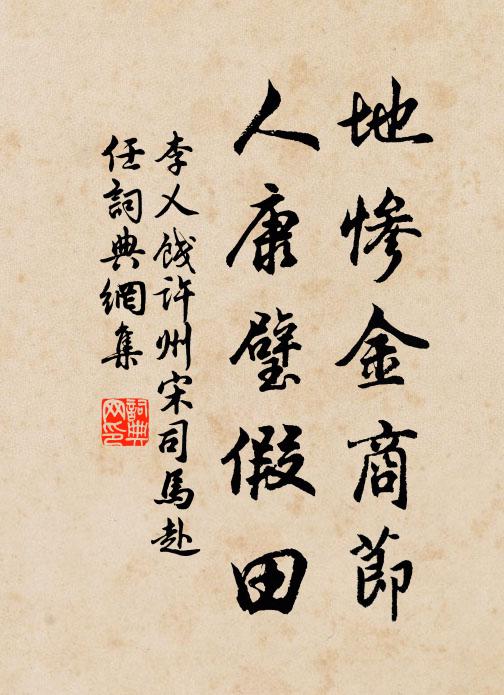 地慘金商節
人康璧假田
李乂餞許州宋司馬赴
任詞典網集
詞典网印